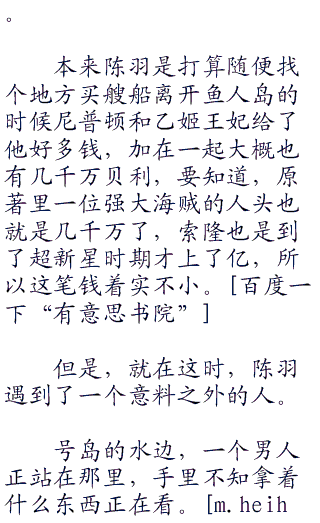 。
本来陈羽是打算随便找
个地方买艘船离开鱼人岛的
时候尼普顿和乙姬王妃给了
他好多钱，加在一起大概也
有几千万贝利，要知道，原
著里一位强大海贼的人头也
就是几千万了，索隆也是到
了超新星时期才上了亿，所
以这笔钱着实不小。[百度一
下“有意思书院”]
但是，就在这时，陈羽
遇到了一个意料之外的人。
号岛的水边，一个男人
正站在那里，手里不知拿着
什么东西正在看。[m.heih